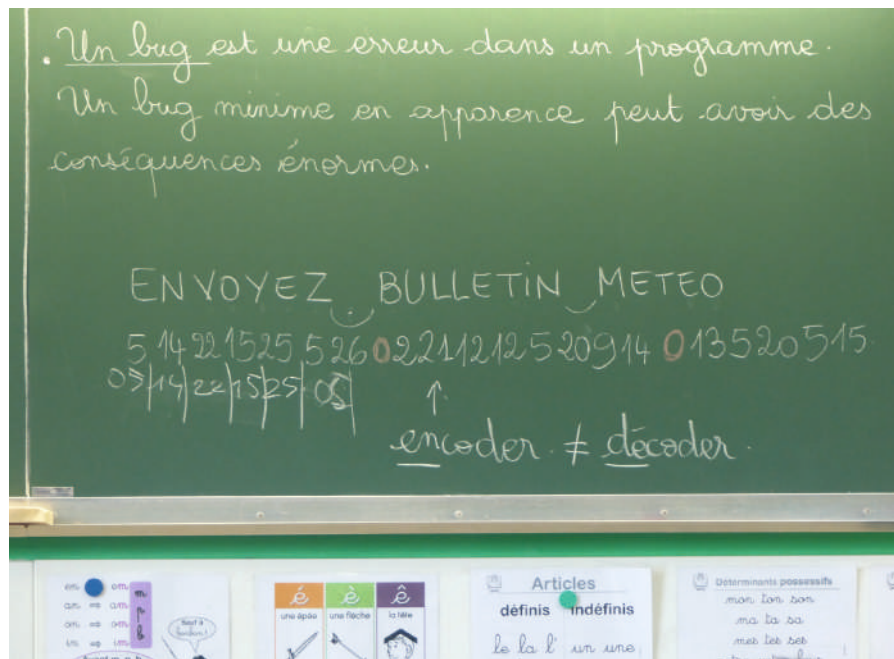 . Un bug est une erreur dans un programme.
Un bug minime en apparence peut avoir des
conséquences énormes.
ENVOYEZ BULLETIN METEO
5 14 22 15 25 5 26 0 2 21 12 12 5 20 9 14 0 13 5 20 5 15
05|14|22|15|25|05|
↑
encoder ≠ décoder.
em om m
an ⇒ am p
on ⇒ om b
in ⇒ im
é è ê
une épée une flèche la tête
Articles
définis indéfinis
le la l' un une
Déterminants possessifs
mon ton son
ma ta sa
mes tes ses